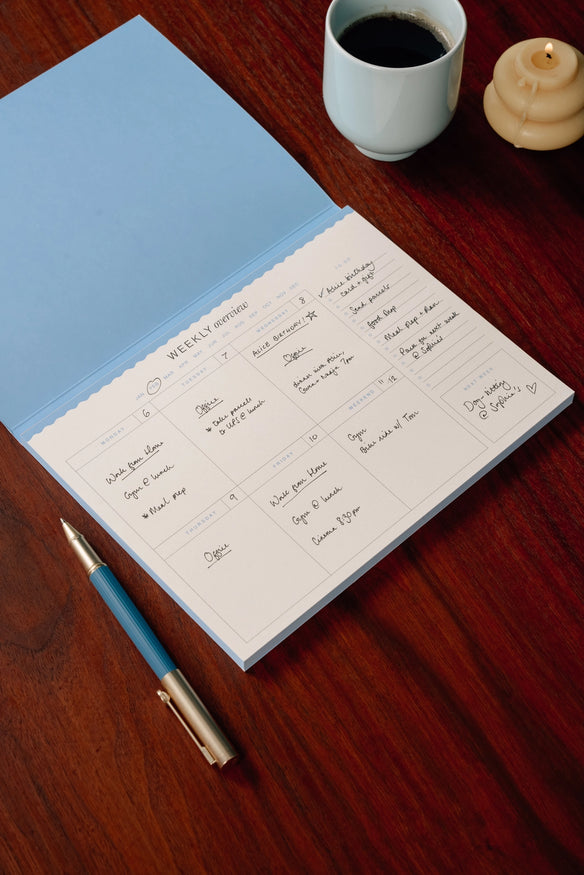 WEEKLY overview
JAN FEB MAR APR MAY JUN JUL AUG SEP OCT NOV DEC
MONDAY 6
Work from Home
Gym @ lunch
* Meal prep
TUESDAY 7
Office
* take parcels
to UPS @ lunch
WEDNESDAY 8
ALICE BIRTHDAY!
Office
dinner with Alice,
7pm
THURSDAY 9
Office
FRIDAY 10
Work from Home
Gym @ lunch
Cinema 8.30pm
WEEKEND 11 12
Gym
Bike ride w/ Tom
TO DO
✓ Alice birthday
card + gift
Send parcels
food shop
Meal Prep + Plan
Pack for next week
@ Sophie's
NEXT WEEK
Dog-sitting
@ Sophie's ♡